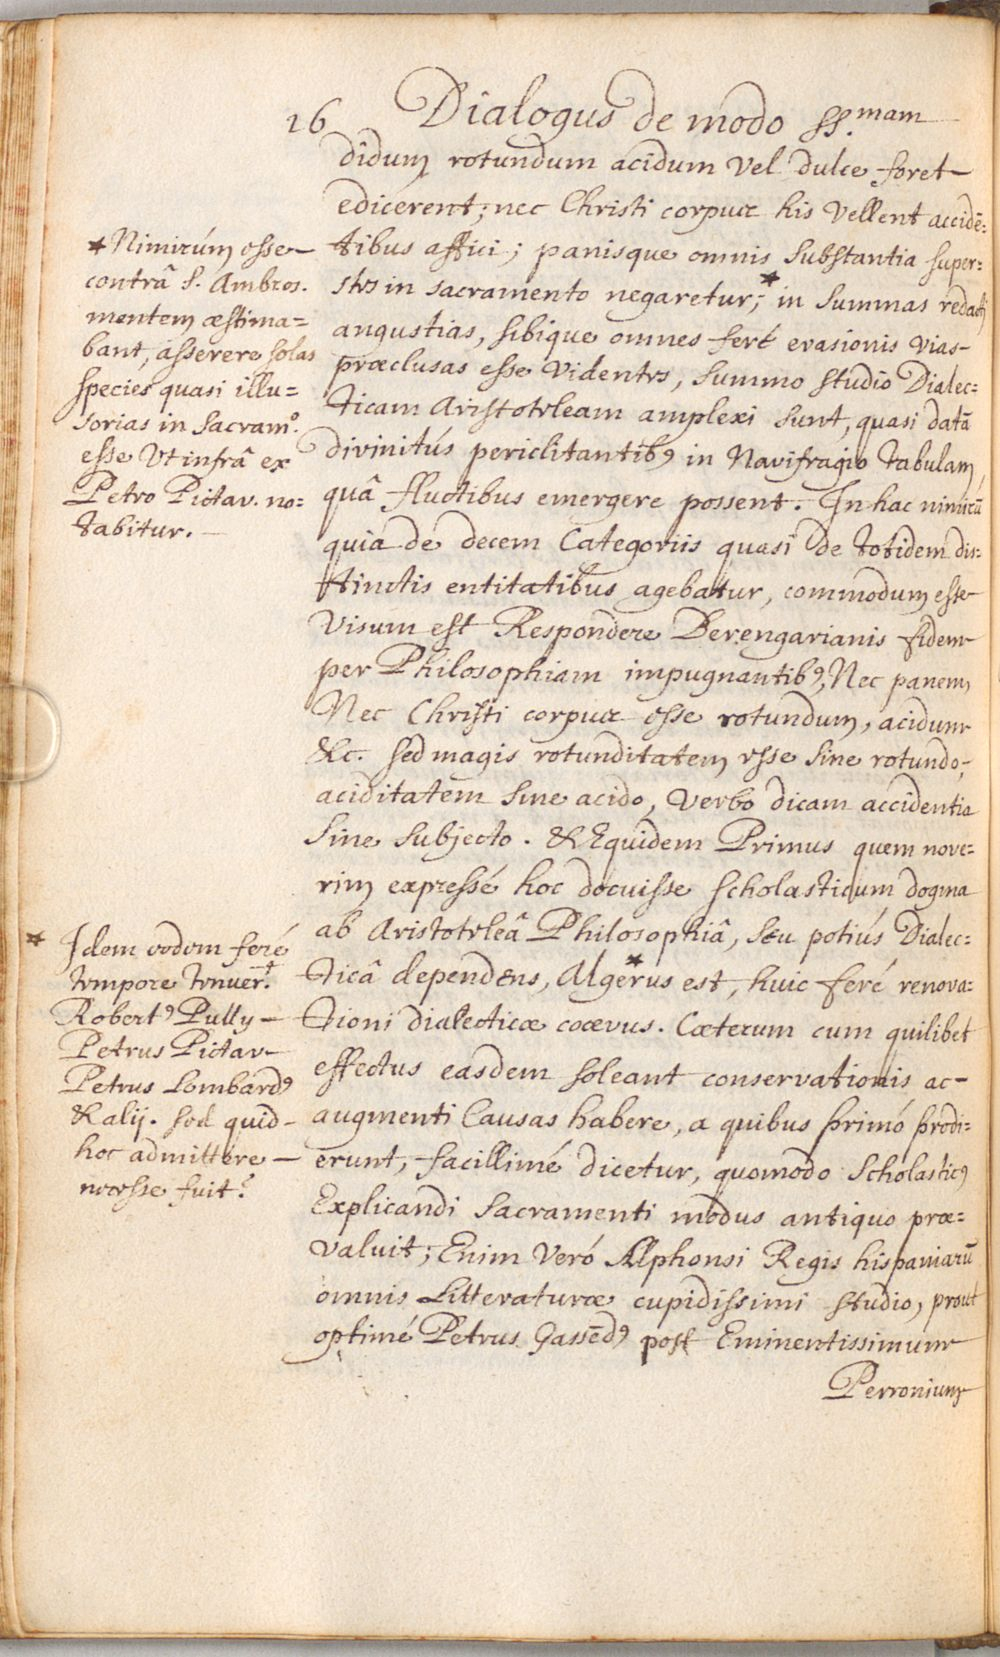 16 Dialogus de modo ss.mam
didum rotundum acidum vel dulce foret
edicerent; nec Christi corpus his vellent accidē=
tibus affici; panisque omnis substantia super=
stes in sacramento negaretur;* in summas redacti
angustias, sibique omnes feré evasionis vias
præclusas esse videntes, summo studio Dialec=
ticam Aristoteleam amplexi sunt, quasi datā
divinitús periclitantib9 in Navifragio tabulam,
quâ fluctibus emergere possent. In hac nimirū
quia de decem Categoriis quasi de totidem dis=
tinctis entitatibus agebatur, commodum esse
visum est Respondere Berengarianis fidem
per Philosophiam impugnantib9, Nec panem,
Nec Christi corpus esse rotundum, acidum
&c. sed magis rotunditatem esse sine rotundo,
aciditatem sine acido, verbo dicam accidentia
sine subjecto. & Equidem Primus quem nove=
rim expressé hoc docuisse scholasticum dogma
ab Aristoteleâ Philosophiâ, seu potiús Dialec=
ticâ dependens, Algerus* est, huic feré renova=
tioni dialecticæ coævus. Cæterum cum quilibet
effectus easdem soleant conservationis ac
augmenti Causas habere, a quibus primó prodi=
erunt, facillimé dicetur, quomodo Scholastic9
Explicandi Sacramenti modus antiquo præ=
valuit; Enim veró Alphonsi Regis hispaniarū
omnis Litteraturæ cupidissimi studio, prout
optimé Petrus Gassēd9 post Eminentissimum
Perronium
*Nimirúm esse
contrâ S. Ambros.
mentem æstima=
bant, asserere solas
species quasi illu=
sorias in Sacram.o
esse Ut infrâ ex
Petro Pictav. no=
tabitur.
* Idem eodem feré
tempore tenuer.t
Robert9 Pully
Petrus Pictav
Petrus Lombard9
& alij. sed quid
hoc admittere
necesse fuit?